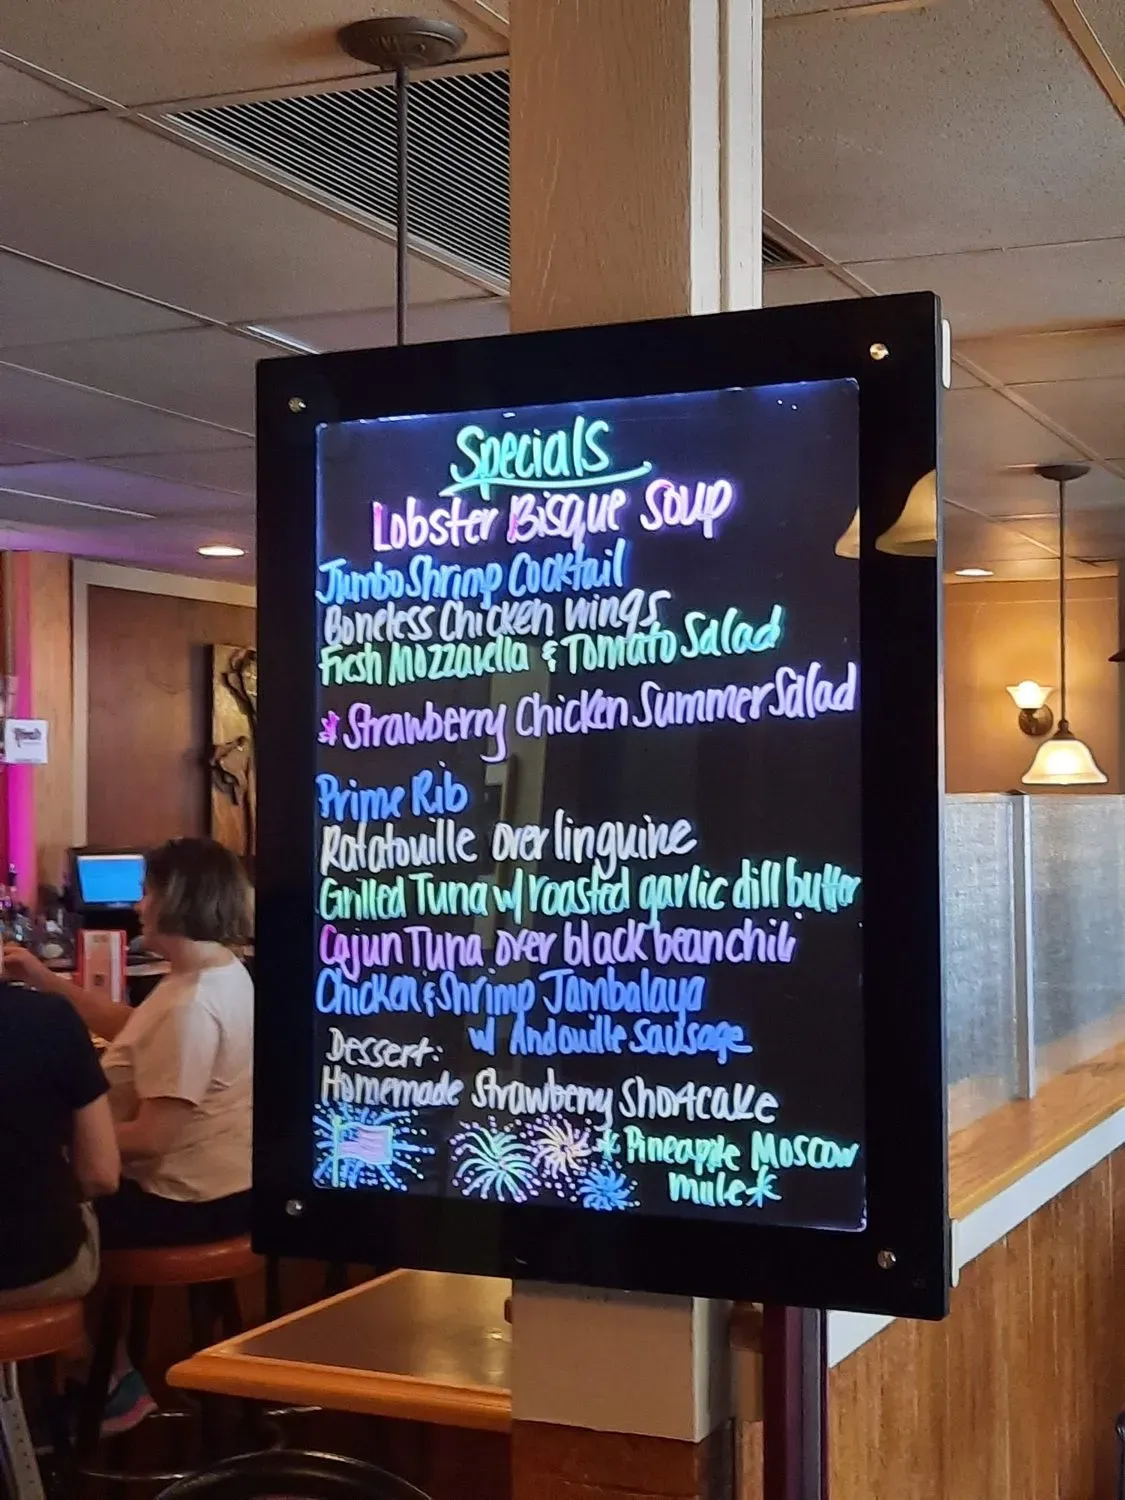 Specials
Lobster Bisque Soup
Jumbo Shrimp Cocktail
Boneless Chicken Wings
Fresh Mozzarella & Tomato Salad
* Strawberry Chicken Summer Salad
Prime Rib
Ratatouille over linguine
Grilled Tuna w/ roasted garlic dill butter
Cajun Tuna over black bean chili
Chicken & Shrimp Jambalaya
w/ Andouille Sausage
Dessert:
Homemade Strawberry Shortcake
* Pineapple Moscow
mule *